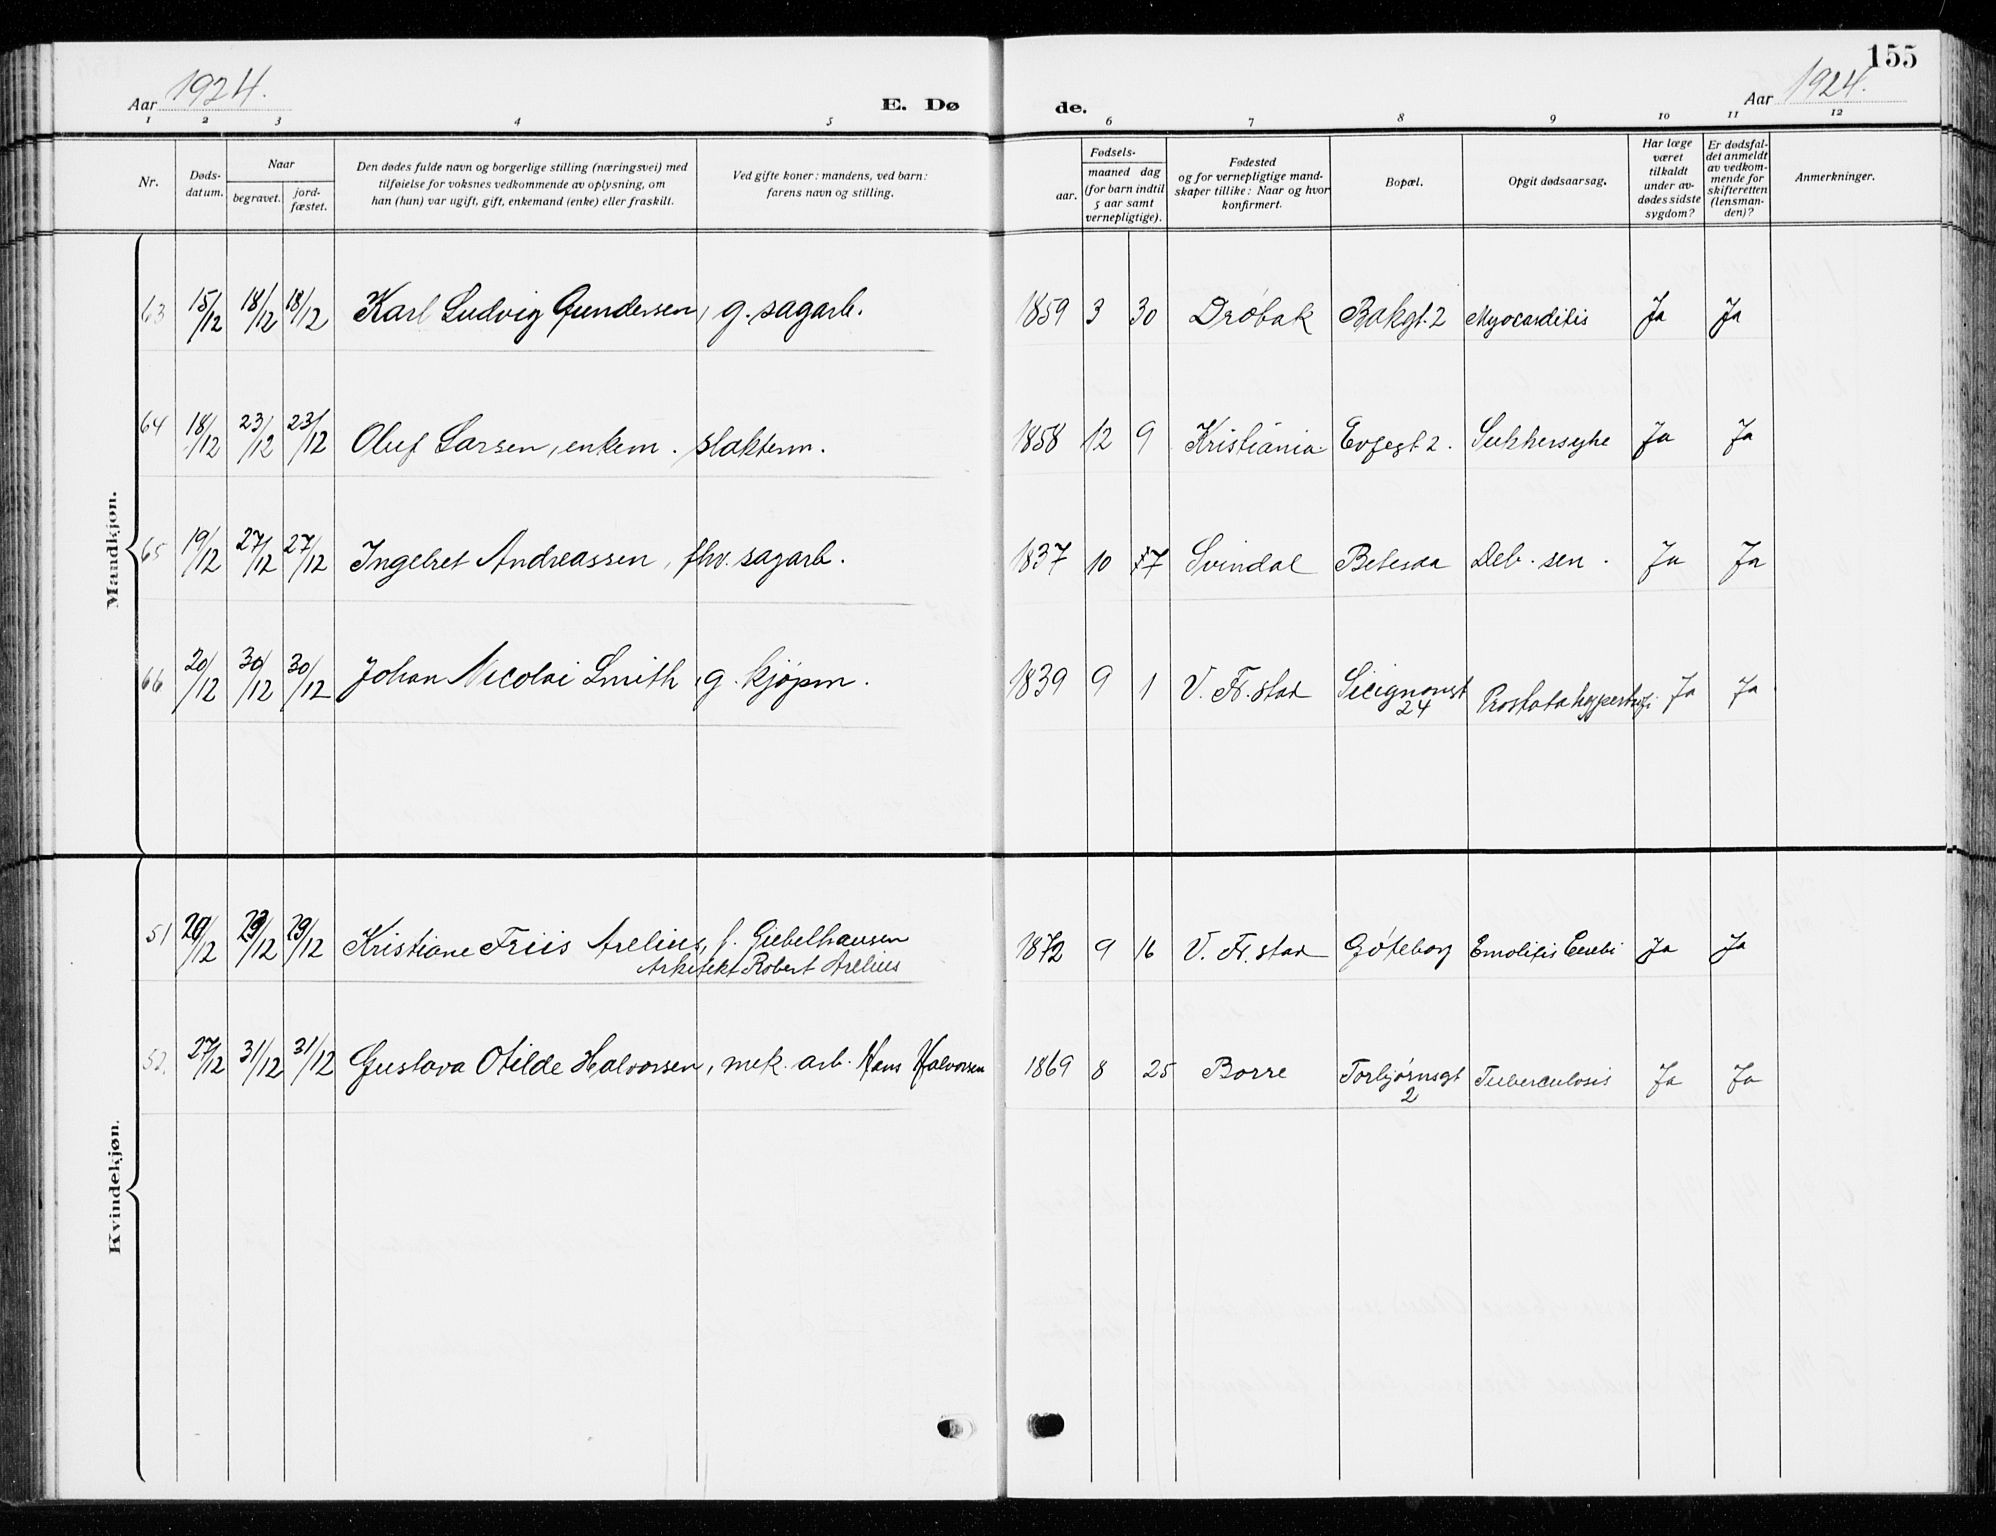 155
Aar 1924. E. Dø de. Aar 1924.
1 2 3 4 5 6 7 8 9 10 11 12
Nr.
Døds-
datum.
Naar
begravet.
jord-
fæstet.
Den dødes fulde navn og borgerlige stilling (næringsvei) med
tilføielse for voksnes vedkommende av oplysning, om
han (hun) var ugift, gift, enkemand (enke) eller fraskilt.
Ved gifte koner: mandens, ved barn:
farens navn og stilling.
Fødsels-
aar.
maaned dag
(for barn indtil
5 aar samt
vernepligtige).
Fødested
og for vernepligtige mand-
skaper tillike: Naar og hvor
konfirmert.
Bopæl.
Opgit dødsaarsag.
Har læge
været
tilkaldt
under av-
dødes sidste
sygdom?
Er dødsfal-
det anmeldt
av vedkom-
mende for
skifteretten
(lensman-
den)?
Anmerkninger.
Mandkjøn.
63 15/12 18/12 18/12 Karl Ludvig Gundersen, g. sagarb. 1859 3 30 Drøbak Bakgt. 2 Myocarditis Ja Ja
64 18/12 23/12 23/12 Oluf Larsen, enkem. slakterm. 1858 12 9 Kristiania Evjegt 2. Sukkersyke Ja Ja
65 19/12 27/12 27/12 Ingebret Andreassen, fhv. sagarb. 1837 10 7 Svindal Betesda Deb. sen. Ja Ja
66 20/12 30/12 30/12 Johan Nicolai Smith, g. kjøpm. 1839 9 1 V. Fr.stad Sicignonsgt
24
Prostatahypertrofi Ja Ja
Kvindekjøn.
51 20/12 29/12 29/12 Kristiane Friis Arelius, f. Giebelhausen
Arkitekt Robert Arelius
1872 9 16 V. Fr.stad Gøteborg Ja Ja
52. 27/12 31/12 31/12 Gustava Otilde Halvorsen, mek. arb. Hans Halvorsen 1869 8 25 Borre Torbjørnsgt
2
Tuberculosis Ja Ja